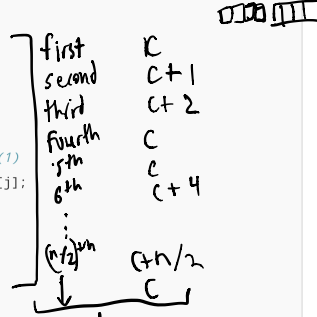 first C
second C+1
third C+2
fourth C
5th C
6th C+4
(n/2)th C+n/2
C
(1)
[j];